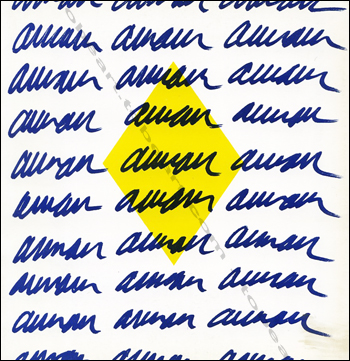 arman arman arman
arman arman arman
arman arman arman
arman arman arman
arman arman arman
arman arman arman
arman arman arman
arman arman arman
arman arman arman